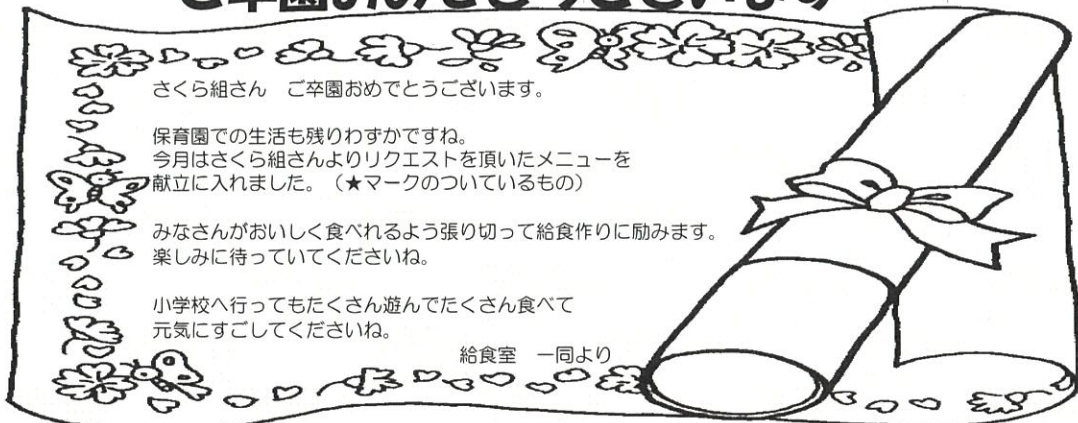 さくら組さん　ご卒園おめでとうございます。
保育園での生活も残りわずかですね。
今月はさくら組さんよりリクエストを頂いたメニューを
献立に入れました。（★マークのついているもの）
みなさんがおいしく食べれるよう張り切って給食作りに励みます。
楽しみに待っていてくださいね。
小学校へ行ってもたくさん遊んでたくさん食べて
元気にすごしてくださいね。
給食室　一同より